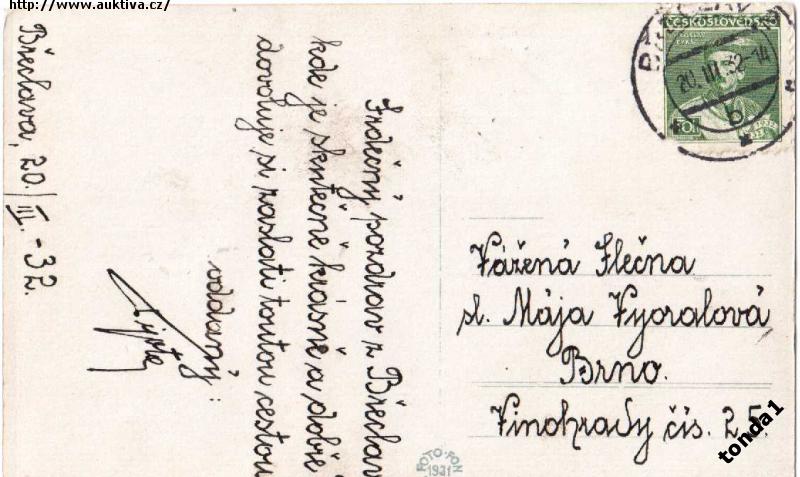 http://www.auktiva.cz/
Břeclava, 20./III.-32.
Srdečný pozdrav z Břeclav
kde je skutečně krásně a dobře
dovoluje si zaslati toutou cestou
oddaný:
ČESKOSLOVENSKO
20.III.32-14
b
Vážená Slečna
sl. Mája Vyoralová
Brno.
Vinohrady čís. 25.
FOTO-FON
1931
tonda1